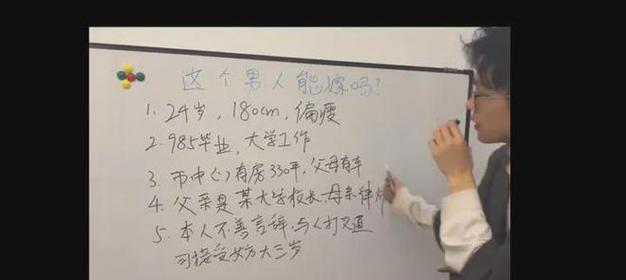 这个男人能嫁吗?
1. 24岁，180cm，偏瘦
2. 985毕业，大学工作
3. 市中心有房330平，父母有车
4. 父亲是某大学校长，母亲律师
5. 本人不善言辞，与人打交道
可接受女方大三岁